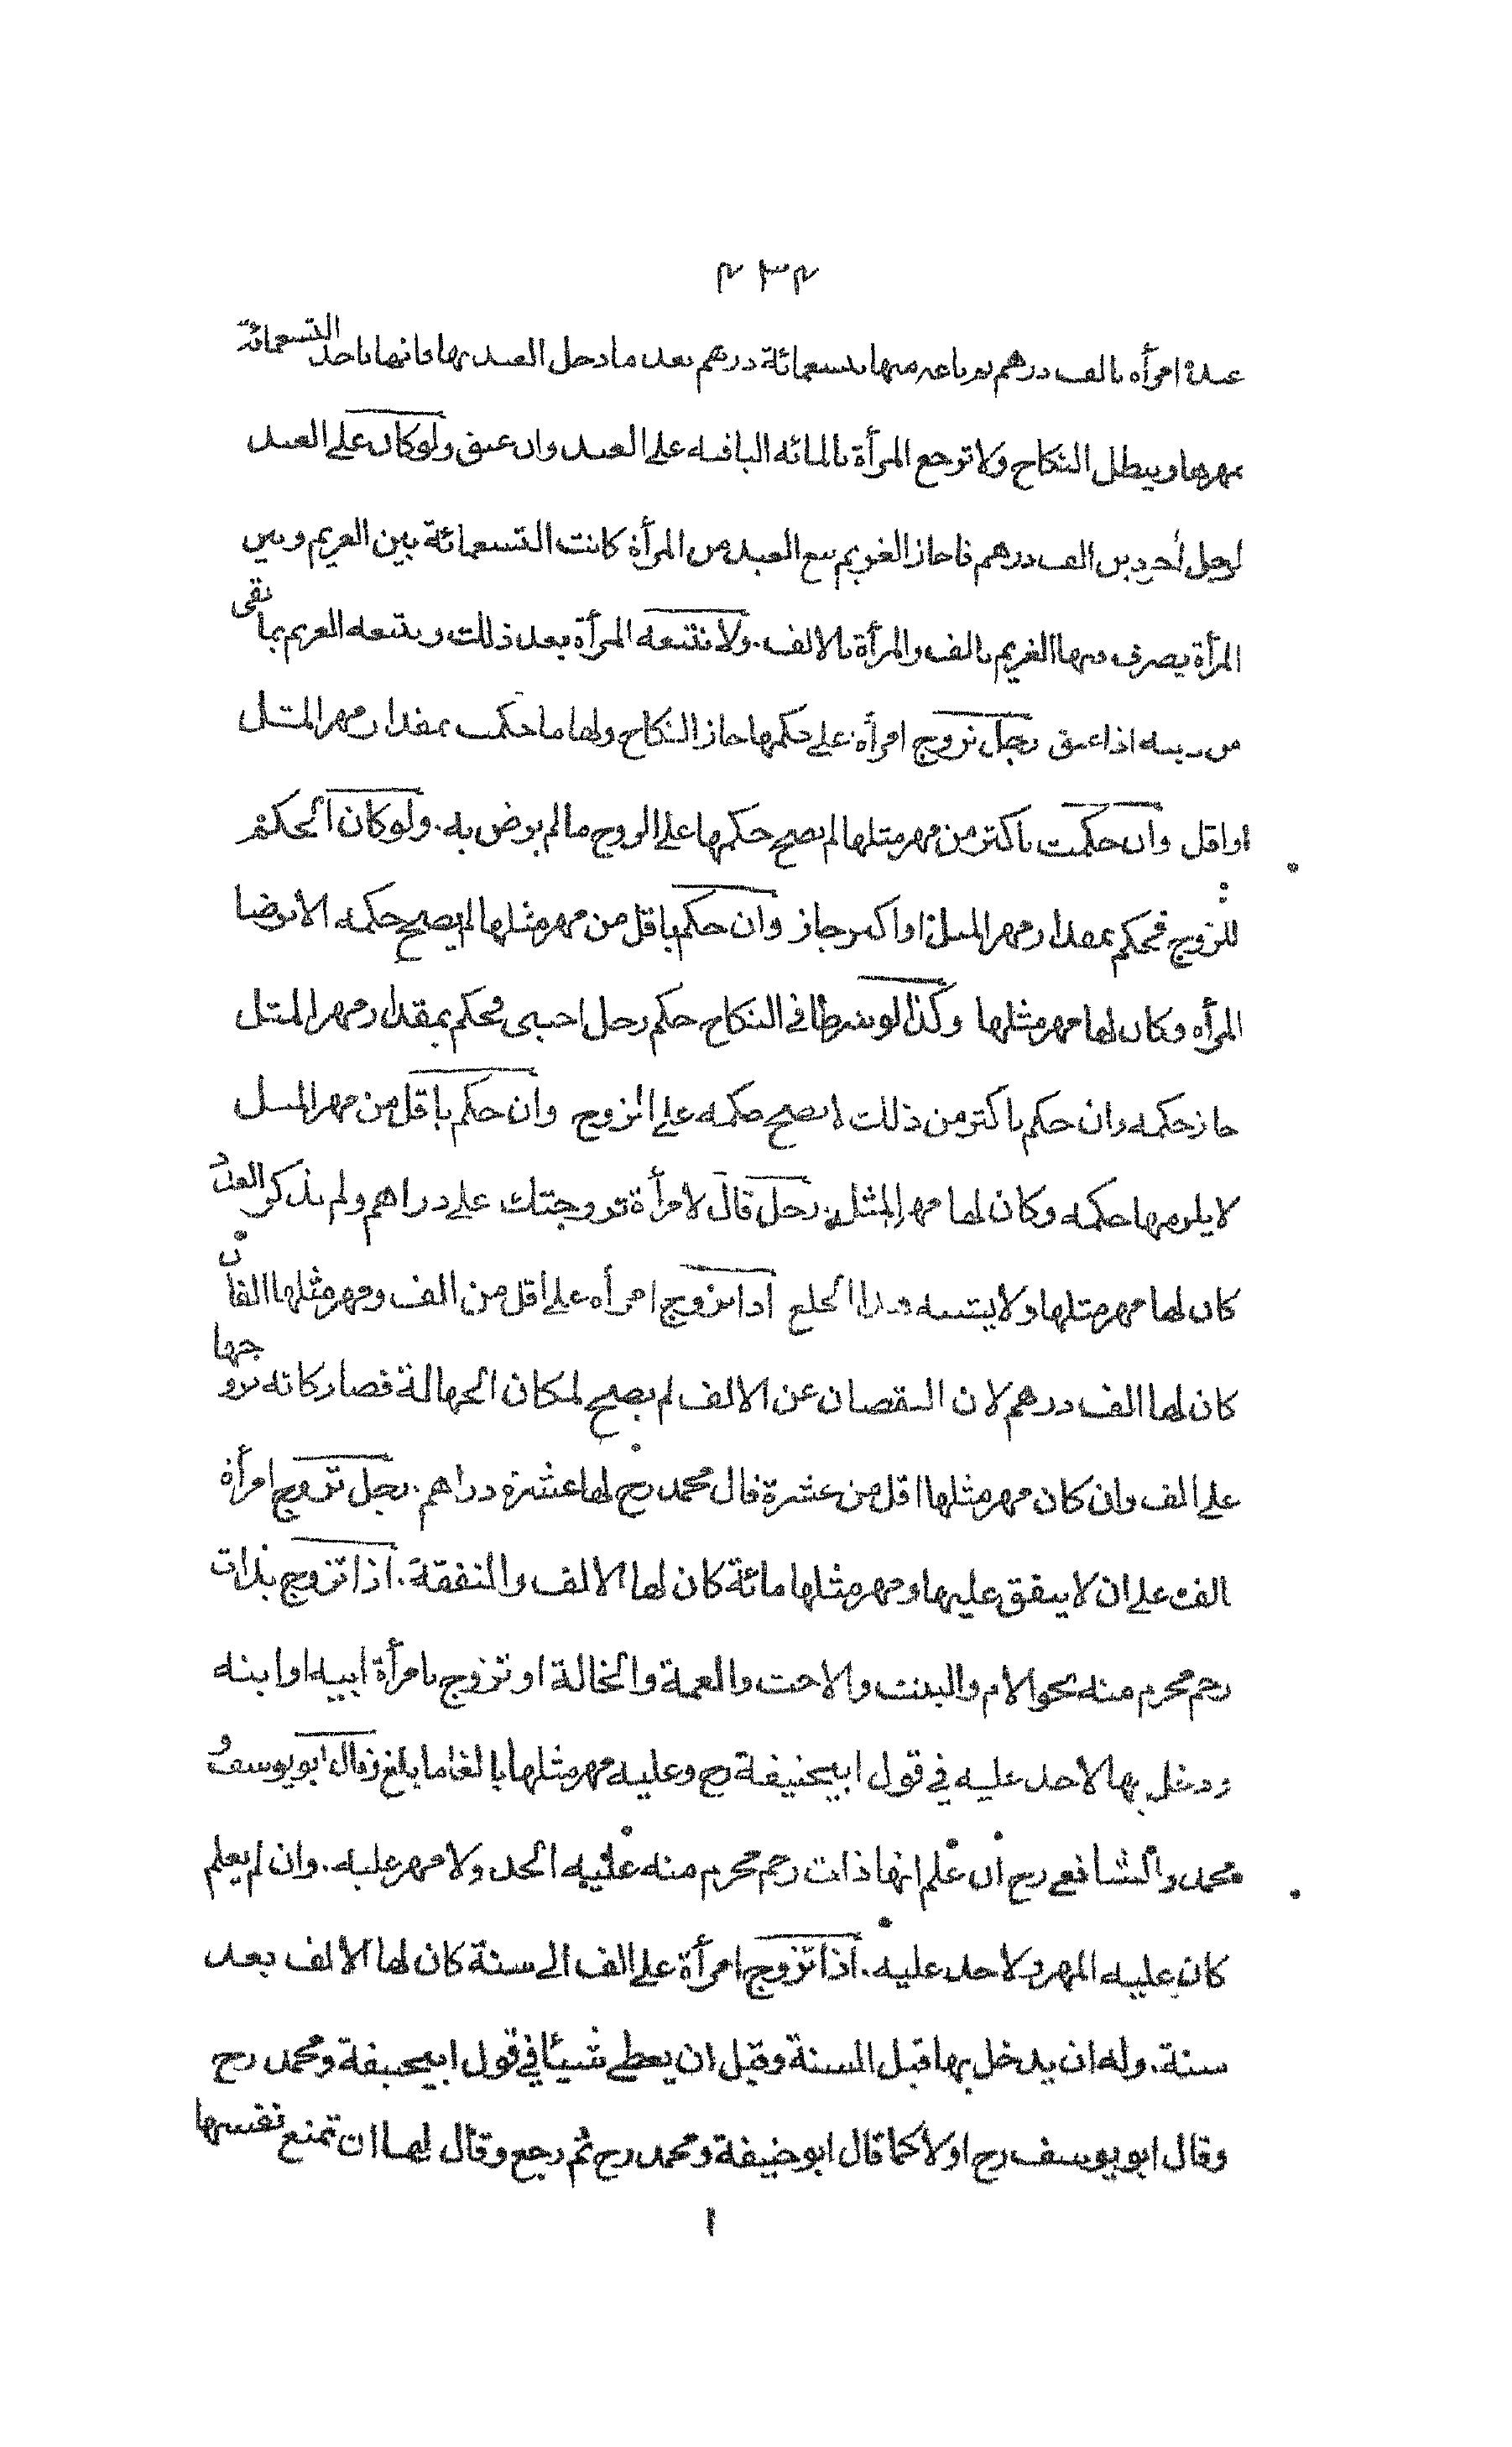 ٢٣٢
عبده امرأه بالف درهم ثم باعه منها بتسعمائة درهم بعد ما دخل العبد بها فانها تاخذ التسعمائة
بمهرها ويبطل النكاح ولا ترجع المرأة بالمائه الباقيه على العبد وان عتق ولو كان على العبد
لرجل أخر دين الف درهم فاجاز الغريم بيع العبد من المرأة كانت التسعمائة بين الغريم وبين
المرأة يضرب فيها الغريم بالف والمرأة بالالف. ولا تتبعه المرأة بعد ذلك ويتبعه الغريم بما بقى
من دينه اذا عتق رجل تزوج امرأة على حكمها جاز النكاح ولها ما حكمت بمقدار مهر المثل
او اقل وان حكمت باكثر من مهر مثلها لم يصح حكمها على الزوج ما لم يرض به. ولو كان الحكم
للزوج فحكم بمقدار مهر المثل او اكثر جاز وان حكم باقل من مهر مثلها لم يصح حكمه الا برضا
المرأه وكان لها مهر مثلها وكذا لو شرطا في النكاح حكم رجل اجنبى فحكم بمقدار مهر المثل
جاز حكمه وان حكم باكثر من ذلك لا يصح حكمه على الزوج وان حكم باقل من مهر المثل
لا يلزمها حكمه وكان لها مهر المثل. رجل قال لامرأة تزوجتك على دراهم ولم يذكر العدد
كان لها مهر مثلها ولا يشبه هذا الخلع اذا تزوج امرأه على اقل من الف ومهر مثلها الفان
كان لها الف درهم لان النقصان عن الالف لم يصح لمكان الجهالة فصار كانه تزوجها
على الف وان كان مهر مثلها اقل من عشرة قال محمد رح لها عشرة دراهم. رجل تزوج امرأة
الف على ان لا ينفق عليها ومهر مثلها مائة كان لها الالف والنفقة. اذا تزوج بذات
رحم محرم منه نحو الام والبنت والاخت والعمة والخالة او تزوج بامرأة ابيه او ابنه
ودخل بها لا حد عليه في قول ابيحنيفة رح وعليه مهر مثلها بالغا ما بلغ وقال ابو يوسف و
محمد والشافعي رح ان علم انها ذات رحم محرم منه عليه الحد ولا مهر عليه. وان لم يعلم
كان عليه المهر ولا حد عليه. اذا تزوج امرأة على الف الى سنة كان لها الالف بعد
سنة. وله ان يدخل بها قبل السنة وقبل ان يعطى شيئا في قول ابيحنيفة ومحمد رح
وقال ابو يوسف رح اولا كما قال ابو حنيفة ومحمد رح ثم رجع وقال لها ان تمنع نفسها
ا